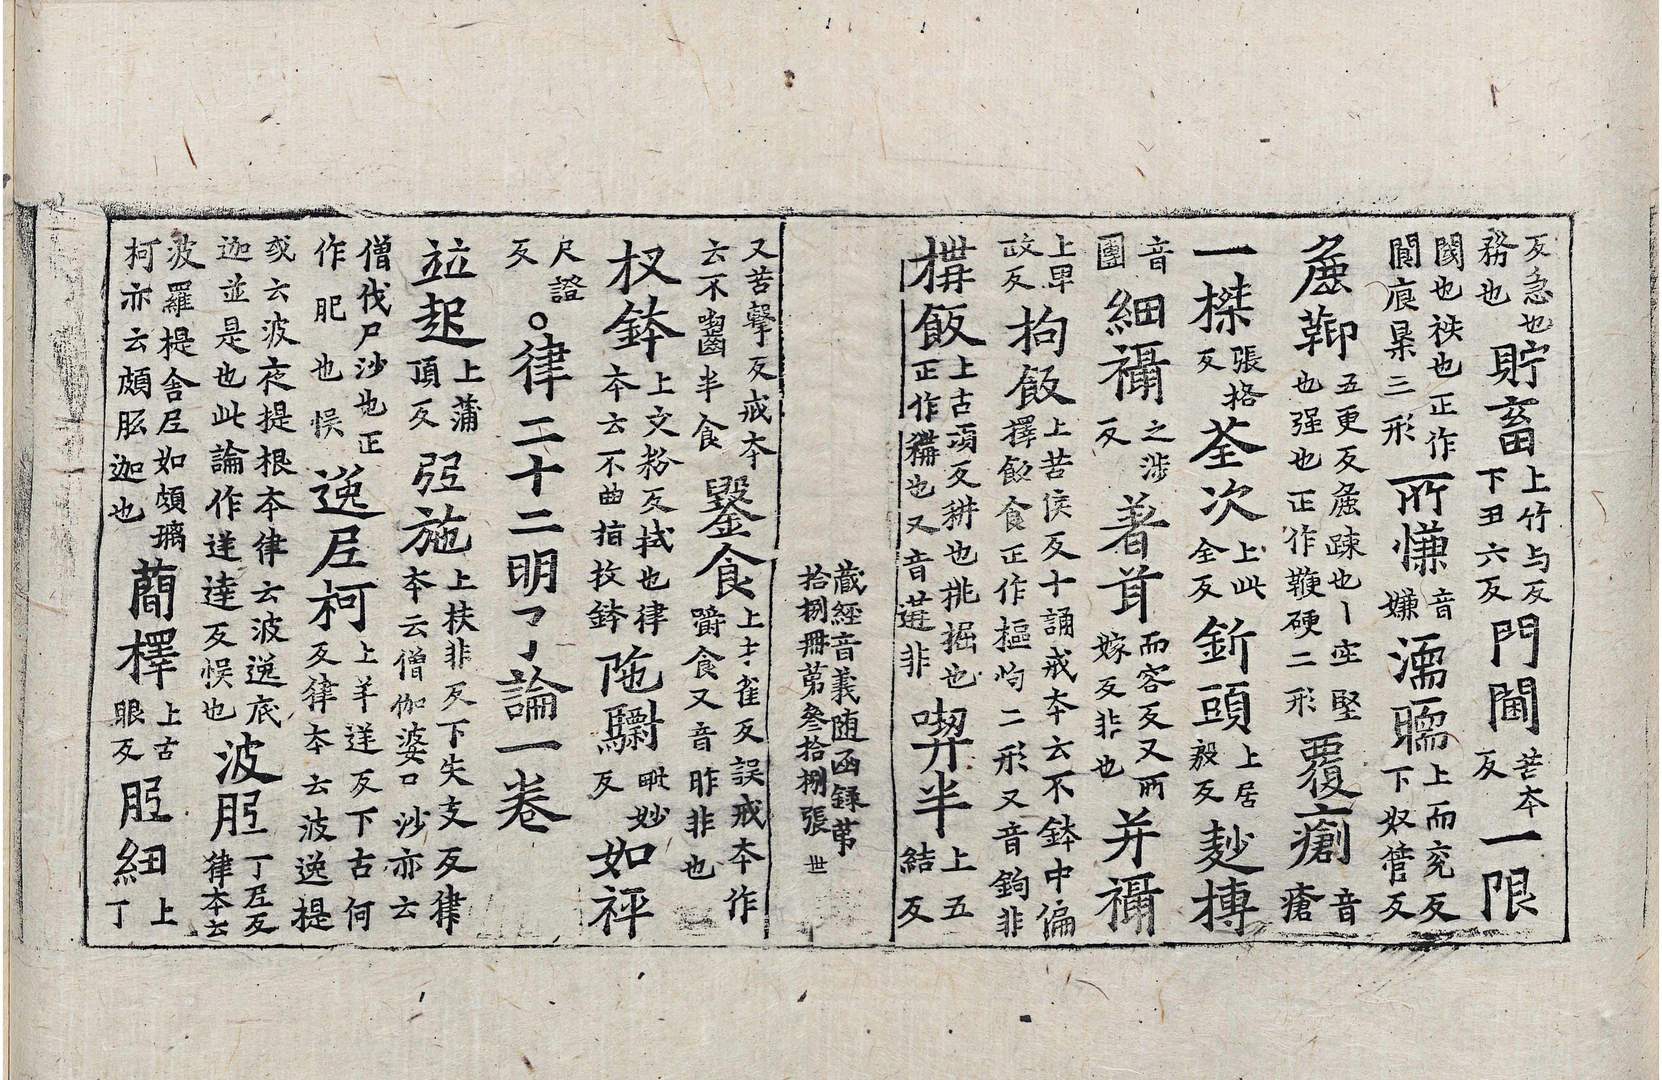 反急也務也貯畜上竹与反下丑六反門閫苦本反一限
閾也袟也正作閬痕杲三形所慊音嫌濡𦗕上而兗反下奴管反
麁鞕五更反麁踈也丨牢堅也强也正作鞭硬二形覆瘡音瘡
一磔張格反荃次上此全反釿頭上居毅反麨摶
音團細襵之涉反著首而容反又所嫁反非也并襵
上卑政反拘飯上苦侯反十誦戒夲云不鉢中偏擇飯食正作摳㧁二形又音鉤非
搆飯上古項反耕也挑掘也正作耩也又音遘非齧半上五結反
藏經音義随函録苐拾捌冊苐叄拾捌張 世
又苦擊反戒夲云不嚙半食鑿食上才雀反誤戒夲作䶩食又音昨非也
杈鉢上文粉反拭也律夲云不曲指抆鉢陁驎毗妙反如秤
尺證反○律二十二明了論一卷
竝起上蒲頂反弛施上扶非反下失支反律夲云僧伽婆口沙亦云
僧伐尸沙也正作肥也悮逸𡰱柯上羊逹反下古何反律夲云波逸提
或云波夜提根夲律云波逸底迦並是也此論作逹逹反悮也波胝丁𡰱反律夲云
波羅提舍𡰱如頗璃柯亦云頗胝迦也蕳擇上古眼反胝細上丁